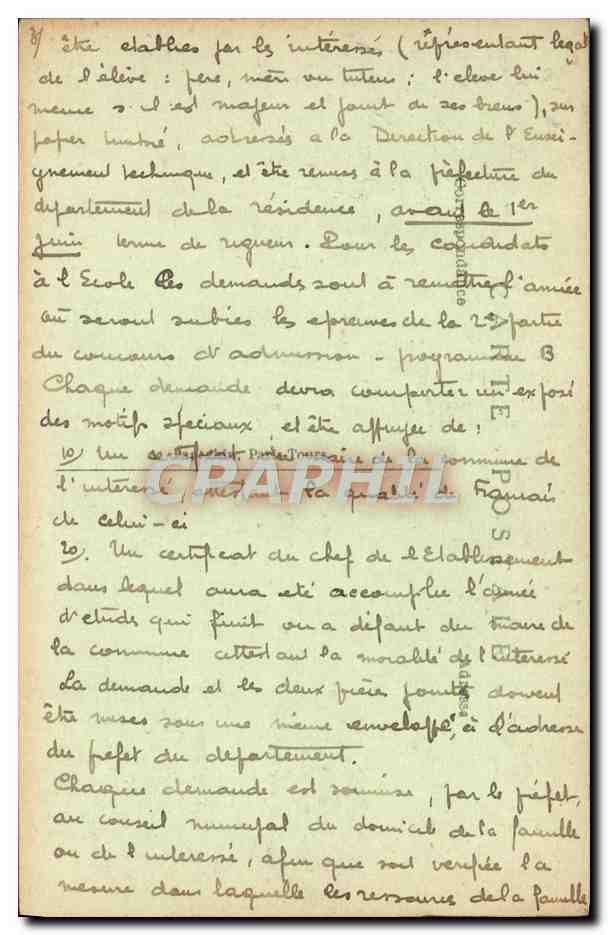 3/ être etablies par les intéressés (représentant legal
de l'élève : père, mère ou tuteur ; l'eleve lui
meme s'il est majeur et jouit de ses biens), sur
papier timbré, adressés a la Direction de l'Ensei-
gnement technique, et être remises à la préfecture du
departement de la résidence, avant le 1er
Juin terme de rigueur. Pour les candidats
à l'Ecole les demandes sont à remettre l'année
où seront subies les epreuves de la 2e partie
du concours d'admission - programme B
Chaque demande devra comporter un exposé
des motifs speciaux et être appuyée de :
1o/ Un certificat du maire de la commune de
l'intéressé, attestant la qualité de Français
de celui-ci
2o/. Un certificat du chef de l'Etablissement
dans lequel aura eté accomplie l'année
d'etudes qui finit ou a défaut du maire de
la commune attestant la moralité de l'intéressé
La demande et les deux pièces jointes doivent
être mises sous une même enveloppe, à l'adresse
du prefet du departement.
Chaque demande est soumise, par le préfet,
au conseil municipal du domicile de la famille
ou de l'interessé, afin que soit verifiée la
mesure dans laquelle les ressources de la famille
Correspondance
CARTE POSTALE
Adresse
CPARAMA